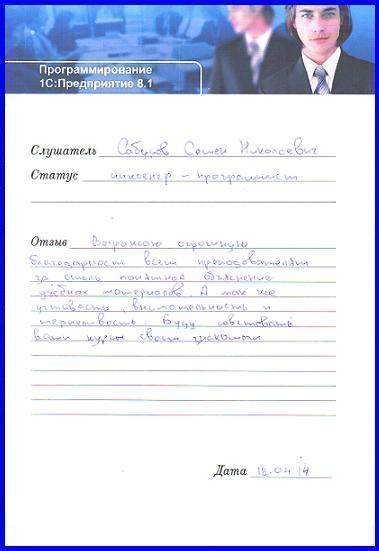 Программирование
1С:Предприятие 8.1
Слушатель Сабуров Семен Николаевич
Статус инженер - программист
Отзыв Выражаю огромную
благодарность всем преподователям
за столь понятное объяснение
учебных материалов. А так же
учтивость, внимательность и
терпеливость. Буду советовать
ваши курсы своим знакомым
Дата 18.04.14